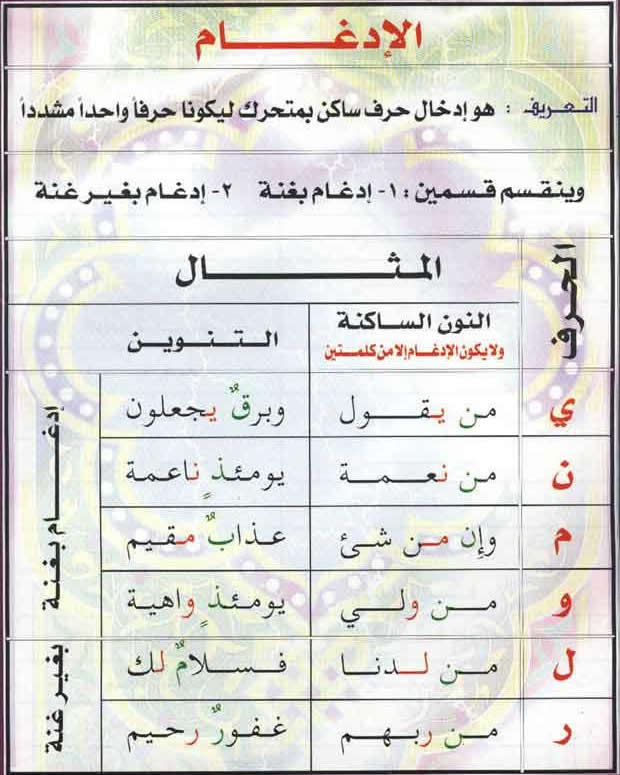 الإدغام
التعريف : هو إدخال حرف ساكن بمتحرك ليكونا حرفاً واحداً مشدداً
وينقسم قسمين : ١- إدغام بغنة ٢- إدغام بغير غنة
الحرف
المثال
النون الساكنة
ولا يكون الإدغام إلا من كلمتين
التنوين
ي
من يقول
وبرقٌ يجعلون
ن
من نعمة
يومئذٍ ناعمة
م
وإن من شئ
عذابٌ مقيم
و
من ولي
يومئذٍ واهية
إدغام بغنة
ل
من لدنا
فسلامٌ لك
ر
من ربهم
غفورٌ رحيم
بغير غنة